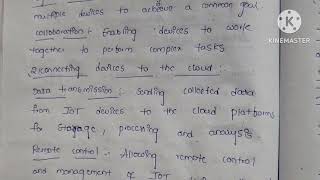 multiple devices to achieve a common goal.
collaboration :- Enabling devices to work
together to perform complex tasks
2. connecting devices to the cloud :-
Data transmission :- Sending collected data
from IOT devices to the cloud platforms
for storage, processing and analysis.
Remote control :- Allowing remote control
and management of IOT
KINEMASTER